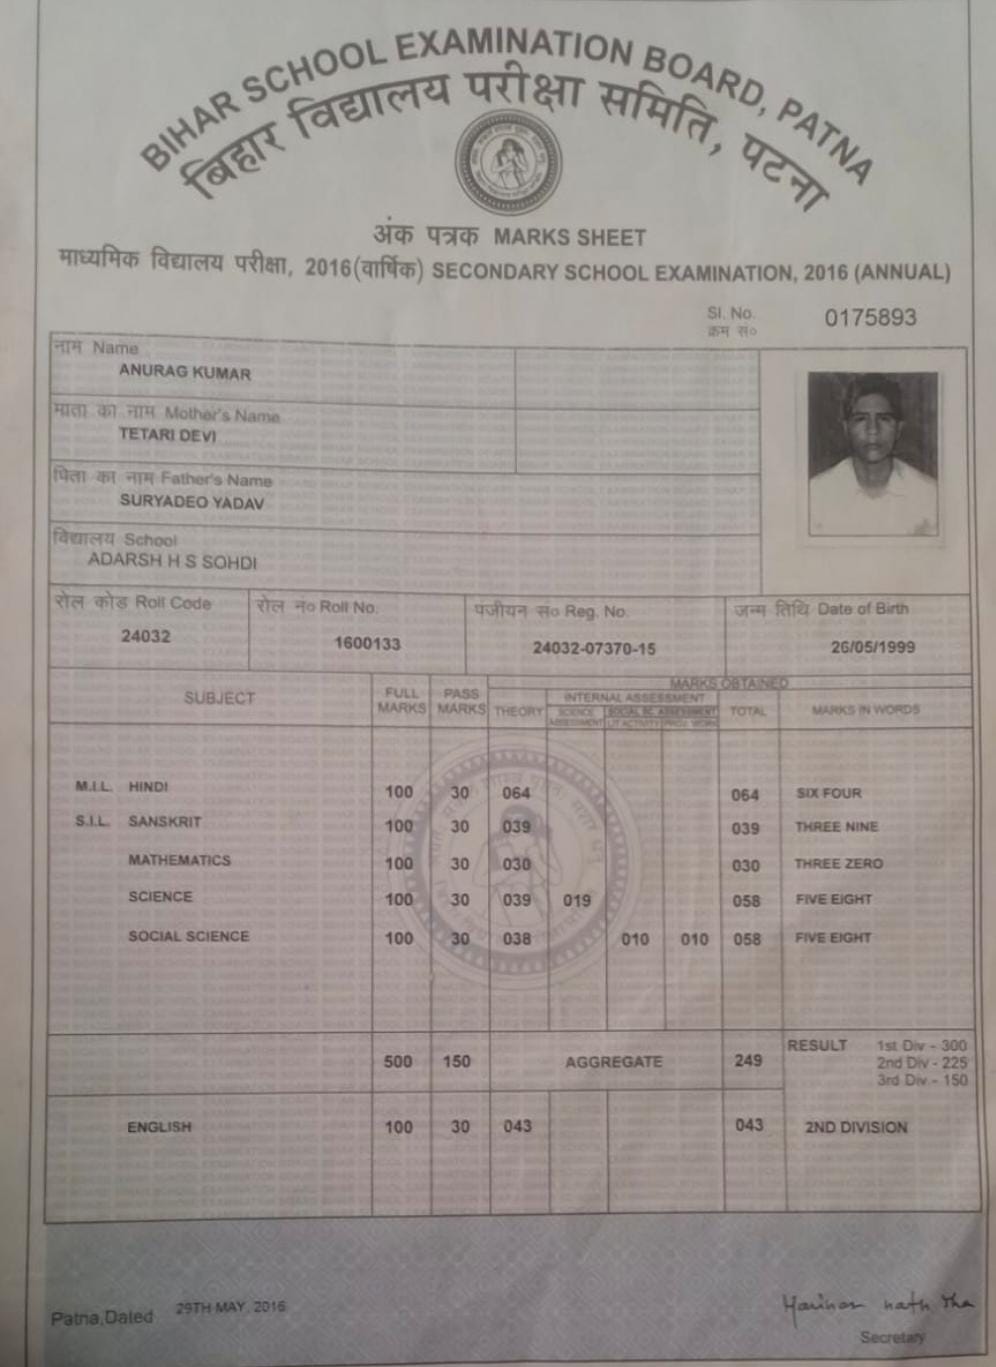 BIHAR SCHOOL EXAMINATION BOARD, PATNA
बिहार विद्यालय परीक्षा समिति, पटना
अंक पत्रक MARKS SHEET
माध्यमिक विद्यालय परीक्षा, 2016(वार्षिक) SECONDARY SCHOOL EXAMINATION, 2016 (ANNUAL)
Sl. No. 0175893
क्रम सं०
नाम Name
ANURAG KUMAR
माता का नाम Mother's Name
TETARI DEVI
पिता का नाम Father's Name
SURYADEO YADAV
विद्यालय School
ADARSH H S SOHDI
रोल कोड Roll Code रोल नं० Roll No. पंजीयन सं० Reg. No. जन्म तिथि Date of Birth
24032 1600133 24032-07370-15 26/05/1999
MARKS OBTAINED
SUBJECT FULL MARKS PASS MARKS THEORY INTERNAL ASSESSMENT TOTAL MARKS IN WORDS
SCIENCE ASSESSMENT SOCIAL SC. ASSESSMENT
LIT ACTIVITY PROJ. WORK
M.I.L. HINDI 100 30 064 064 SIX FOUR
S.I.L. SANSKRIT 100 30 039 039 THREE NINE
MATHEMATICS 100 30 030 030 THREE ZERO
SCIENCE 100 30 039 019 058 FIVE EIGHT
SOCIAL SCIENCE 100 30 038 010 010 058 FIVE EIGHT
500 150 AGGREGATE 249 RESULT 1st Div - 300
2nd Div - 225
3rd Div - 150
ENGLISH 100 30 043 043 2ND DIVISION
Patna,Dated 29TH MAY, 2016
Secretary